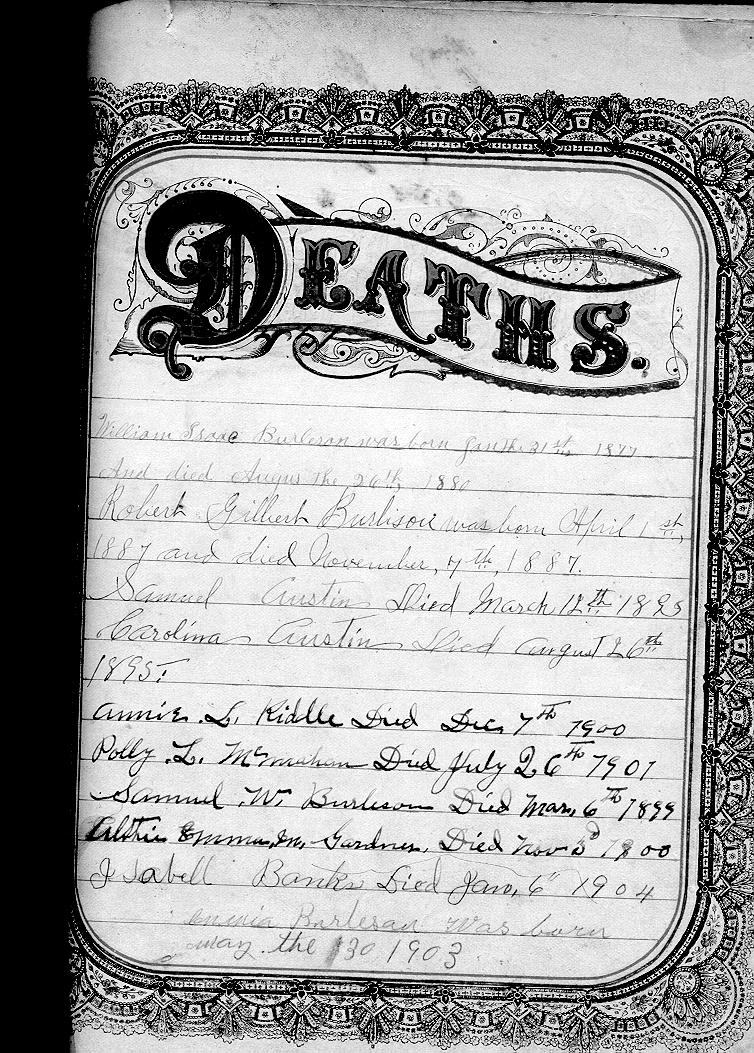 DEATHS.
William Isaac Burleson was born Jan the 31st 1877
And died Augus the 26th, 1880
Robert Gilbert Burlison was born April 1st,
1887 and died November, 7th, 1887.
Samuel Austin Died March 12th 1895
Carolina Austin Died August 26th
1895.
Annie L. Riddle Died Dec, 7th 1900
Polly L. McMahan Died July 26th 1901
Samuel W. Burleson Died Mar, 6th 1899
Emma Gardner, Died Nov 3d 1900
Isabell Banks Died Jan, 6" 1904
Burleson was born
may the 30 1903